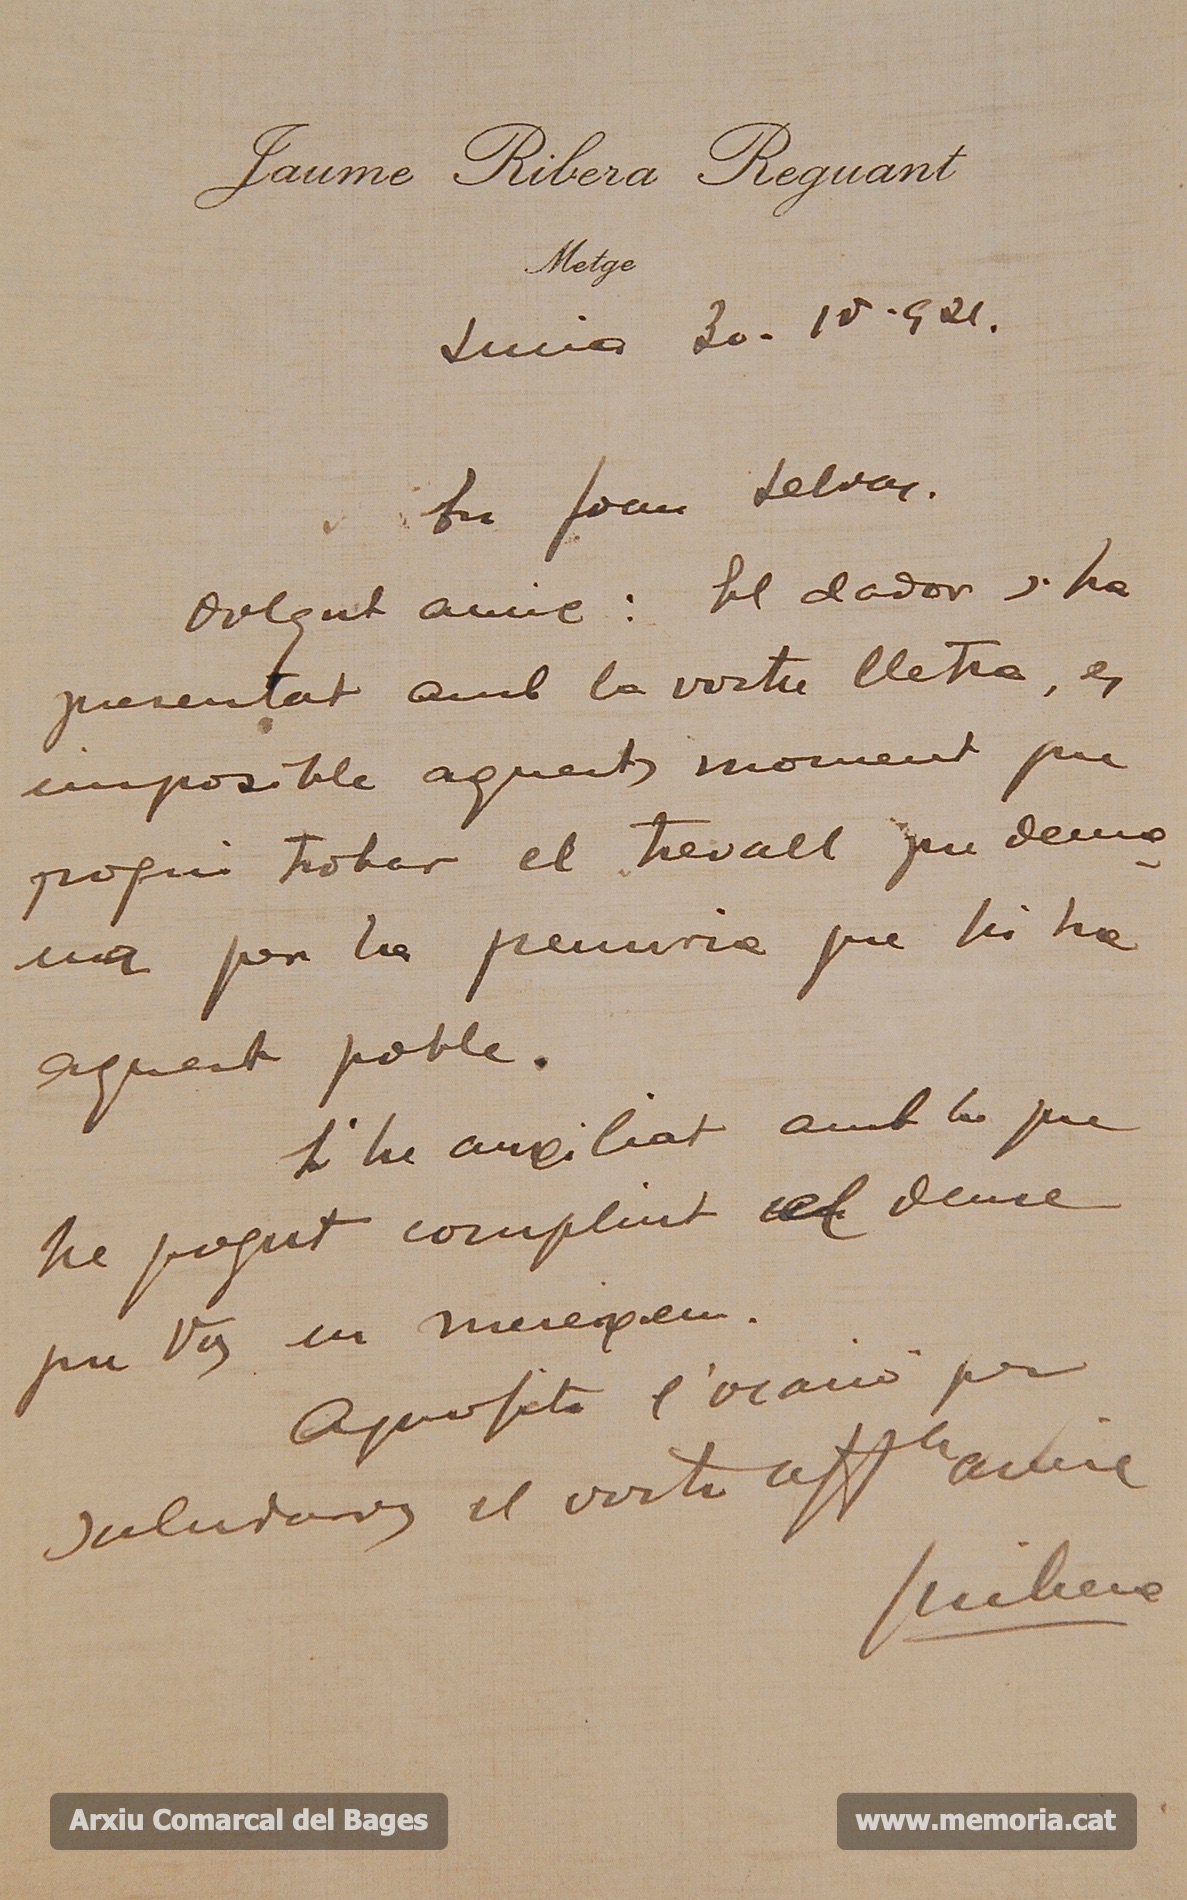 Jaume Ribera Reguant
Metge
Suria 30 - IV - 921.
En Joan Selvas.
Volgut amic: El dador s'ha
presentat amb la vostre lletra, es
imposible aquets moment que
pogui trobar el trevall que dema-
na per la penuria que hi ha
aquest poble.
L'he auxiliat amb lo que
he pogut complint el deure
que Vos en mereixeu.
Aprofito l'ocasió per
saludarvos el vostre aff. amic
JRibera
Arxiu Comarcal del Bages
www.memoria.cat